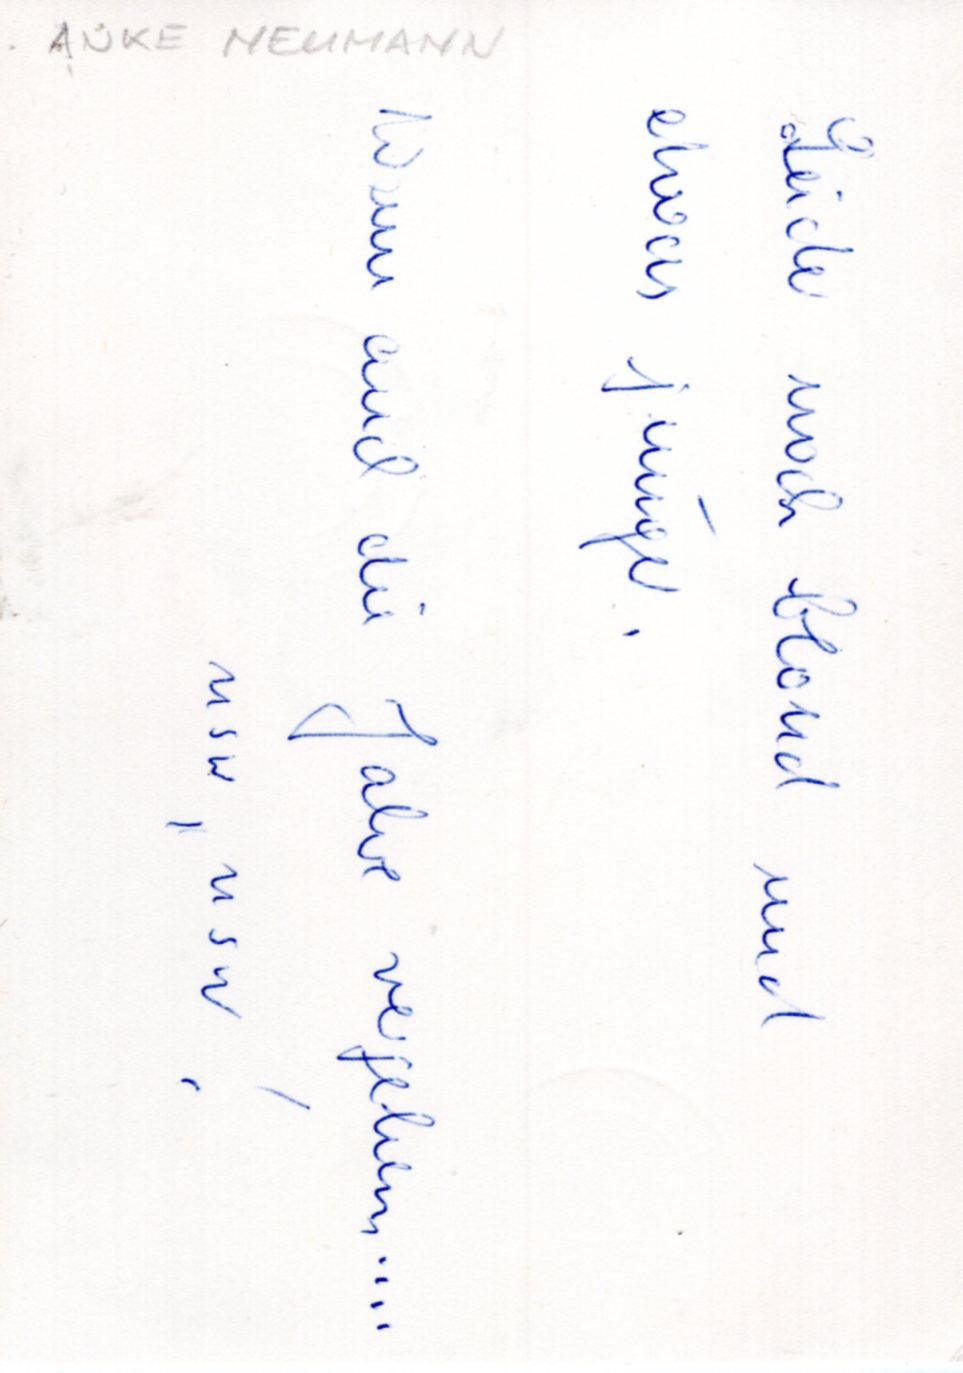 ANKE NEUMANN
Leider noch blond und
etwas jünger.
Wenn auch die Jahre vergehen....
usw, usw,